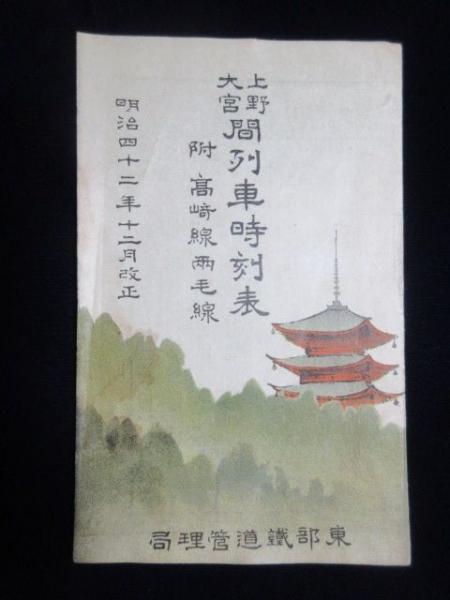 上野
大宮
間列車時刻表
附 高﨑線兩毛線
明治四十二年十二月改正
東部鐵道管理局